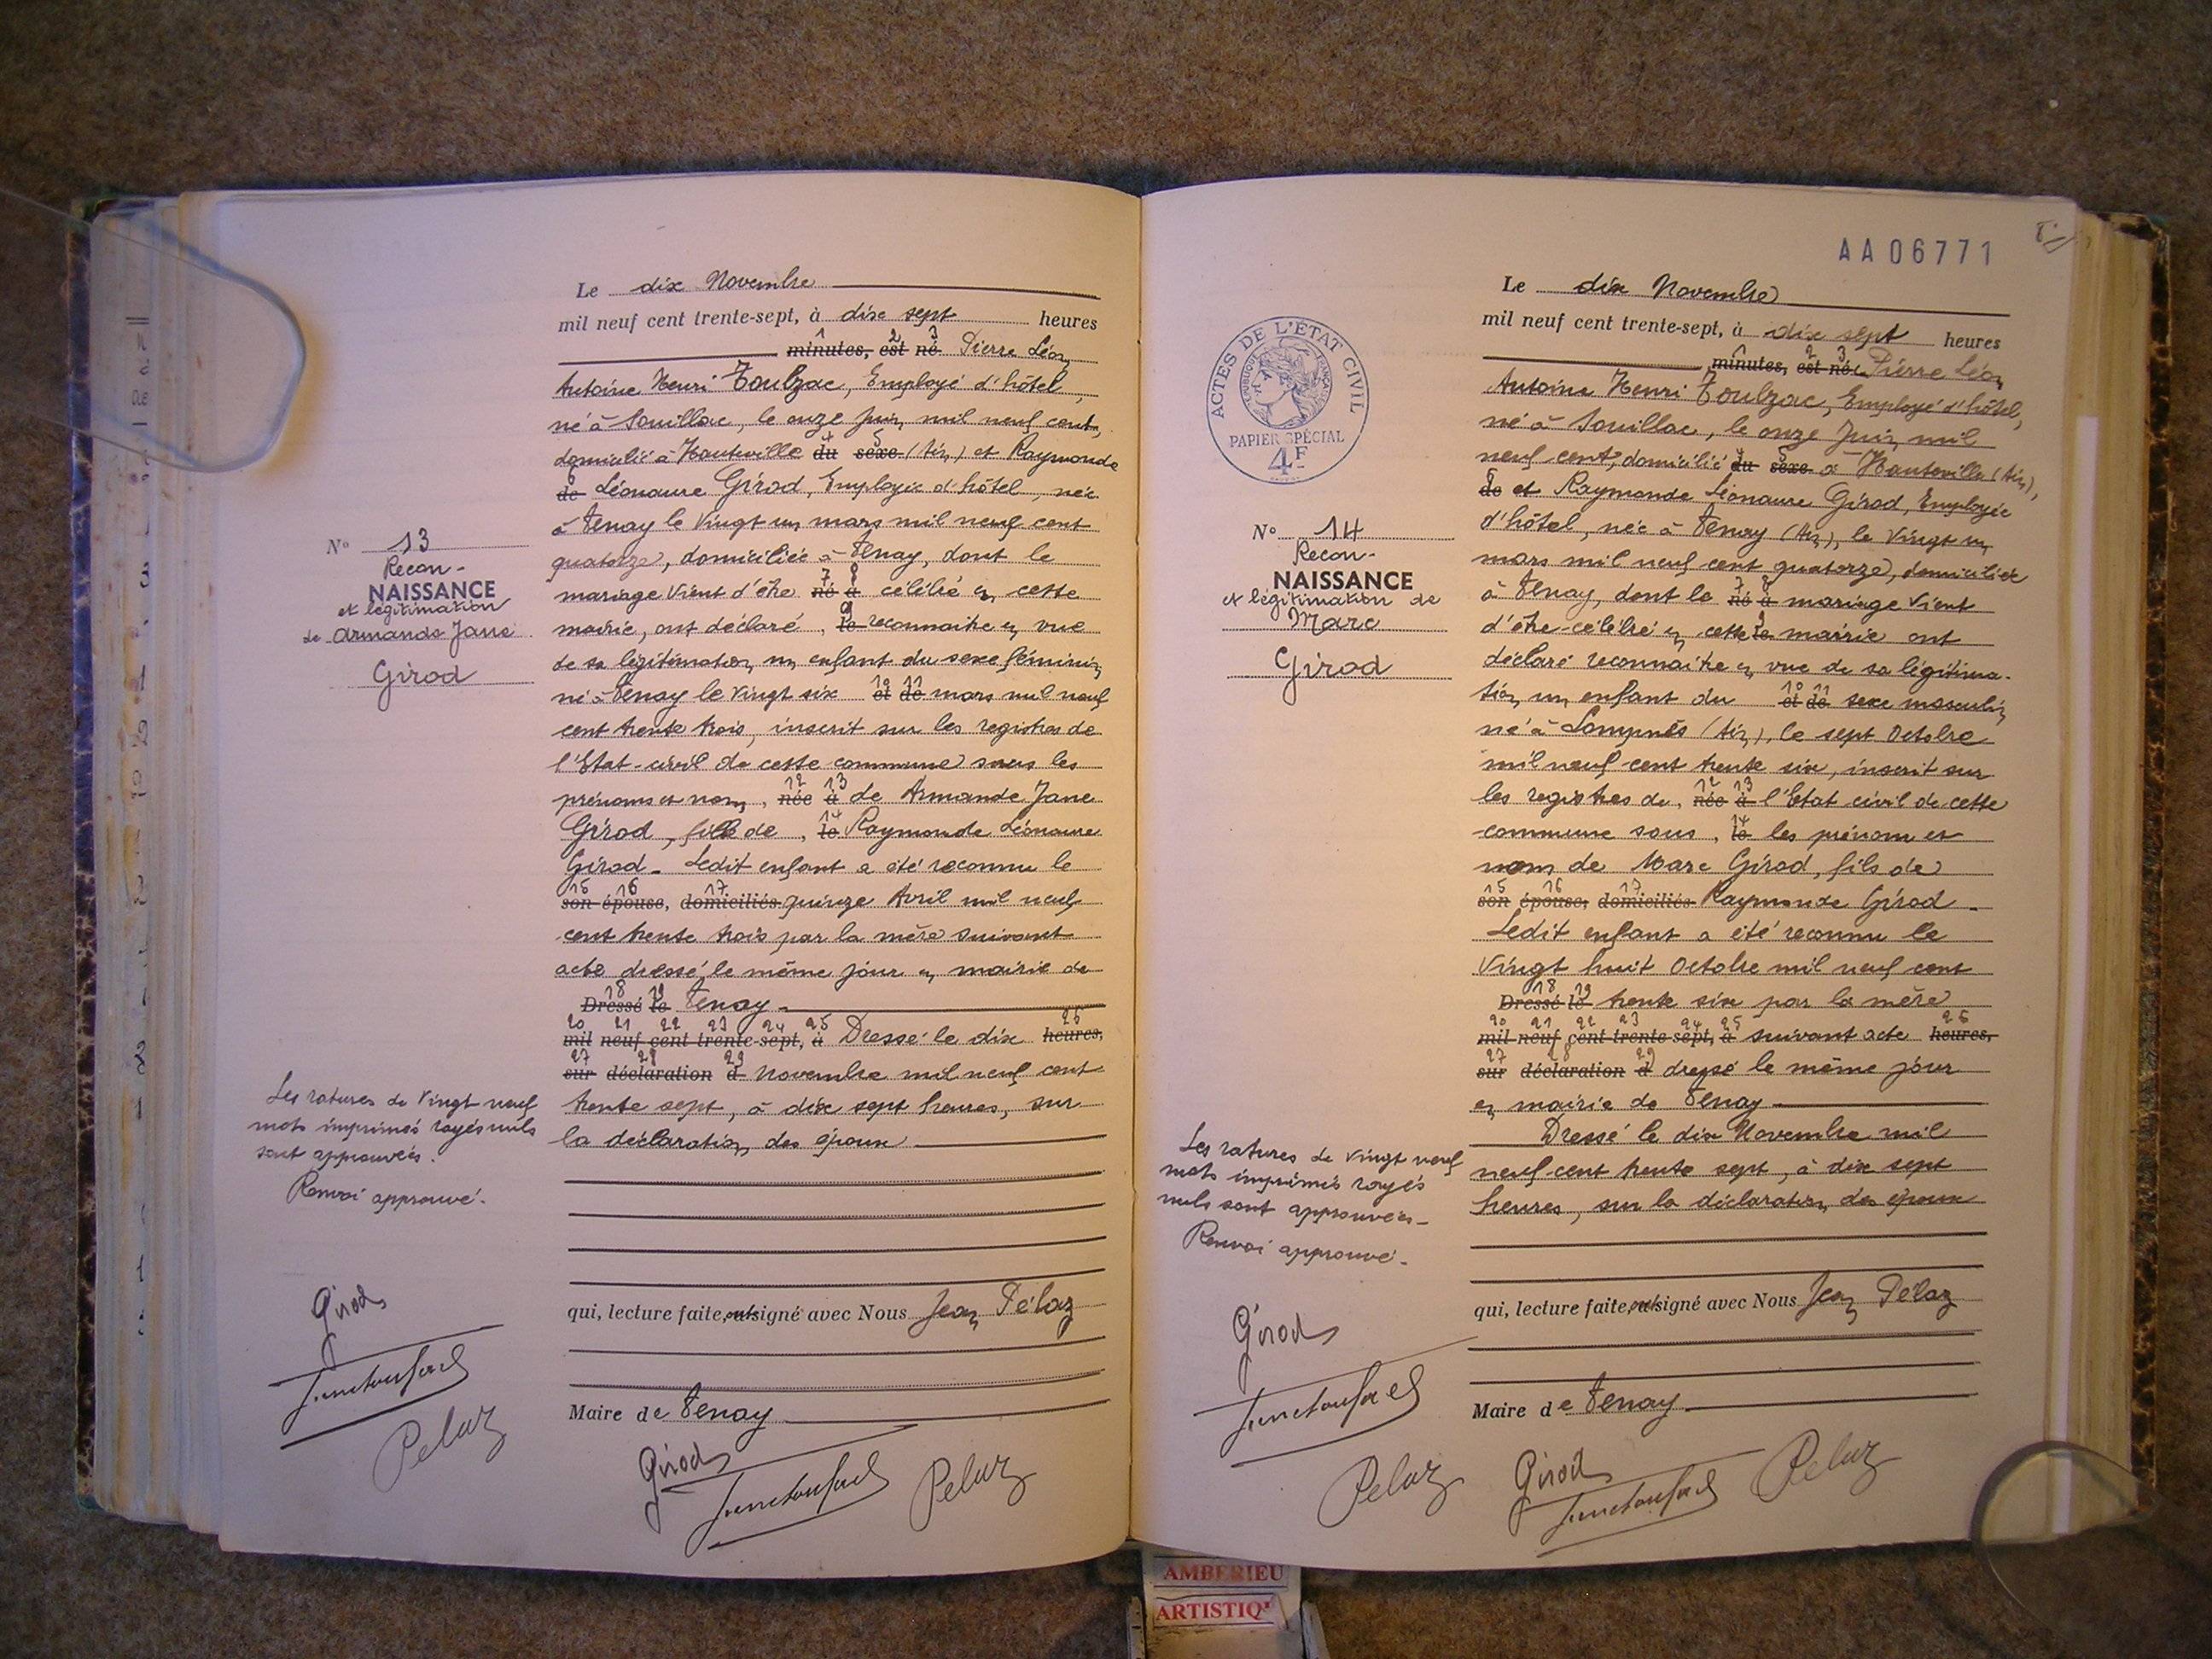 Le dix Novembre
mil neuf cent trente-sept, à dix sept heures
1 2 3
minutes, est né Pierre Léon
Antoine Henri Toulzac, Employé d'hôtel,
né à Souillac, le onze Juin mil neuf cent,
4 5
domicilié à Hauteville du sexe (Ain) et Raymonde
6
de Léonaure Girod, Employée d'hôtel, née
à Tenay le Vingt un mars mil neuf cent
quatorze, domiciliée à Tenay, dont le
7 8
mariage vient d'être né à célébré en cette
9
mairie, ont déclaré, le reconnaitre en vue
de sa légitimation un enfant du sexe féminin
10 11
né à Tenay le Vingt six et de mars mil neuf
cent trente trois, inscrit sur les registres de
l'Etat-civil de cette commune sous les
12 13
prénoms et nom, née à de Armande Jane
14
Girod, fille de, le Raymonde Léonaure
Girod - Ledit enfant a été reconnu le
15 16 17
son épouse, domiciliés quinze Avril mil neuf
cent trente trois par la mère suivant
acte dressé le même jour en mairie de
18 19
Dressé le Tenay
20 21 22 23 24 25 26
mil neuf cent trente-sept, à Dressé le dix heures,
27 28 29
sur déclaration d Novembre mil neuf cent
trente sept, à dix sept heures, sur
la déclaration des époux
qui, lecture faite, ont signé avec Nous Jean Pélaz
Maire de Tenay
Girod
Pelaz
N° 13
Recon-
NAISSANCE
et légitimation
de Armande Jane
Girod
Les ratures de Vingt neuf
mots imprimés rayés nuls
sont approuvées.
Renvoi approuvé.
Girod
Pelaz
AA06771
Le dix Novembre
mil neuf cent trente-sept, à dix sept heures
1 2 3
minutes, est né Pierre Léon
Antoine Henri Toulzac, Employé d'hôtel,
né à Souillac, le onze Juin mil
4 5
neuf cent, domicilié du sexe à Hauteville (Ain),
6
de et Raymonde Léonaure Girod, Employée
d'hôtel, née à Tenay (Ain), le Vingt un
mars mil neuf cent quatorze, domiciliée
7 8
à Tenay, dont le né à mariage vient
9
d'être célébré en cette le mairie ont
déclaré reconnaitre en vue de sa légitima-
10 11
tion un enfant du et de sexe masculin
né à Lompnès (Ain), le sept Octobre
mil neuf cent trente six, inscrit sur
12 13
les registres de, née à l'Etat civil de cette
14
commune sous, le les prénom et
nom de Marc Girod, fils de
15 16 17
son épouse, domiciliés Raymonde Girod -
Ledit enfant a été reconnu le
Vingt huit Octobre mil neuf cent
18 19
Dressé le trente six par la mère
20 21 22 23 24 25 26
mil neuf cent trente-sept, à suivant acte heures,
27 28 29
sur déclaration d dressé le même jour
en mairie de Tenay
Dressé le dix Novembre mil
neuf cent trente sept, à dix sept
heures, sur la déclaration des époux
qui, lecture faite, ont signé avec Nous Jean Pélaz
Maire de Tenay
Girod
Pelaz
ACTES DE L'ÉTAT CIVIL
RÉPUBLIQUE FRANÇAISE
PAPIER SPÉCIAL
4F
N° 14
Recon-
NAISSANCE
et légitimation de
Marc
Girod
Les ratures de Vingt neuf
mots imprimés rayés
nuls sont approuvées -
Renvoi approuvé -
Girod
Pelaz
AMBERIEU
ARTISTIQ